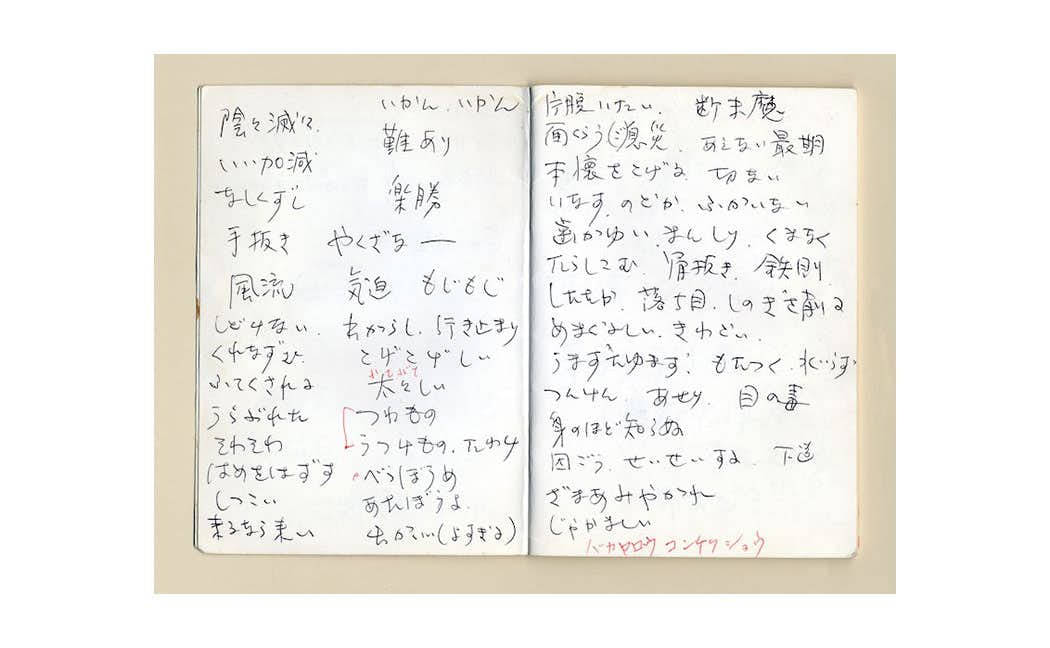 いかん、いかん
陰々滅々
難あり
いい加減
なしくずし
楽勝
手抜き やくざな ー
風流 気迫 もじもじ
しどけない、出がらし、行き止まり
くれなずむ、とげとげしい
ふてくされる 太々しい
うらぶれた つわもの
そわそわ うつけもの、たわけ
はめをはずす べらぼうめ
しつこい あたぼうよ、
来るなら来い 出がいい(よすぎる)
片腹いたい、断末魔
面くらう 息災、あえない最期
本懐をとげる 切ない
いなす、のどか、ふがいない
歯がゆい、まんじり、くまなく
たらしこむ、骨抜き、鉄則
したたか、落ち目、しのぎを削る
めまぐるしい、きわどい、
うまずたゆまず、もたつく、
つんけん、あせり、目の毒
身のほど知らぬ
因ごう、せいせいする、下道
ざまあみやがれ
じゃかましい
バカヤロウ コンチクショウ